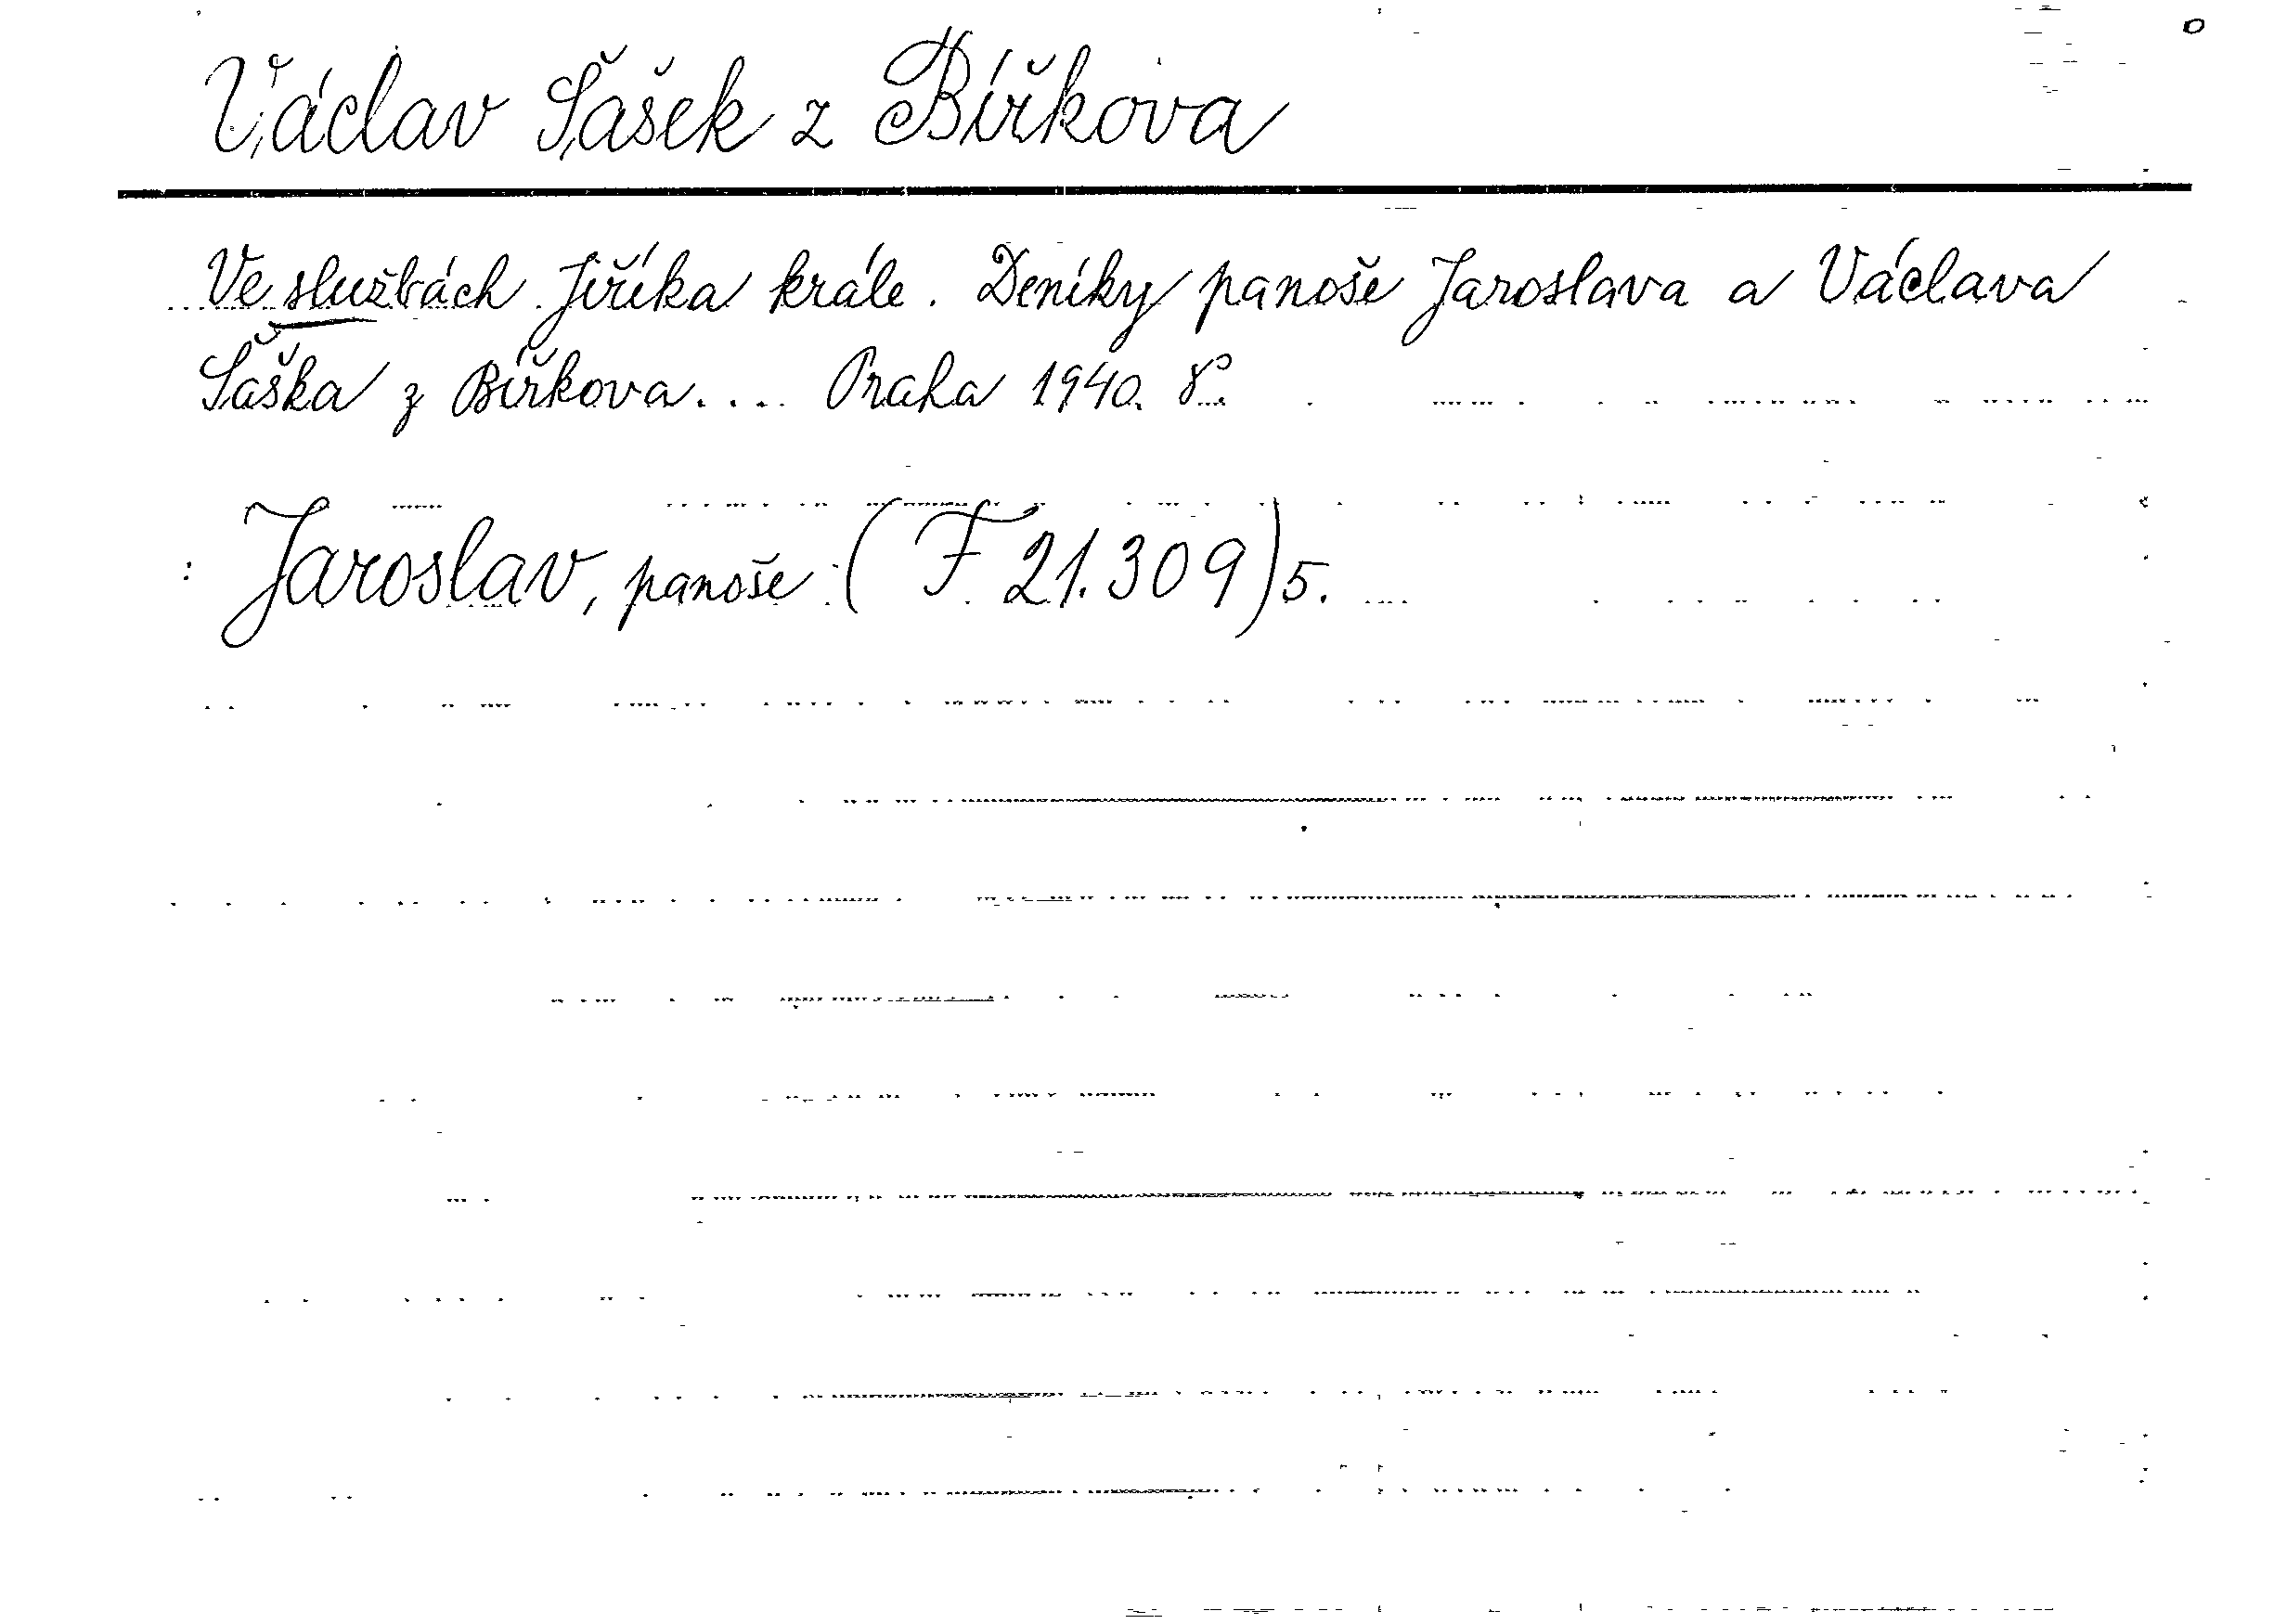 Václav Šašek z Bířkova
Ve službách Jiříka krále. Deníky panoše Jaroslava a Václava
Šaška z Bířkova.... Praha 1940. 8°.
: Jaroslav, panoše (F 21.309) 5.